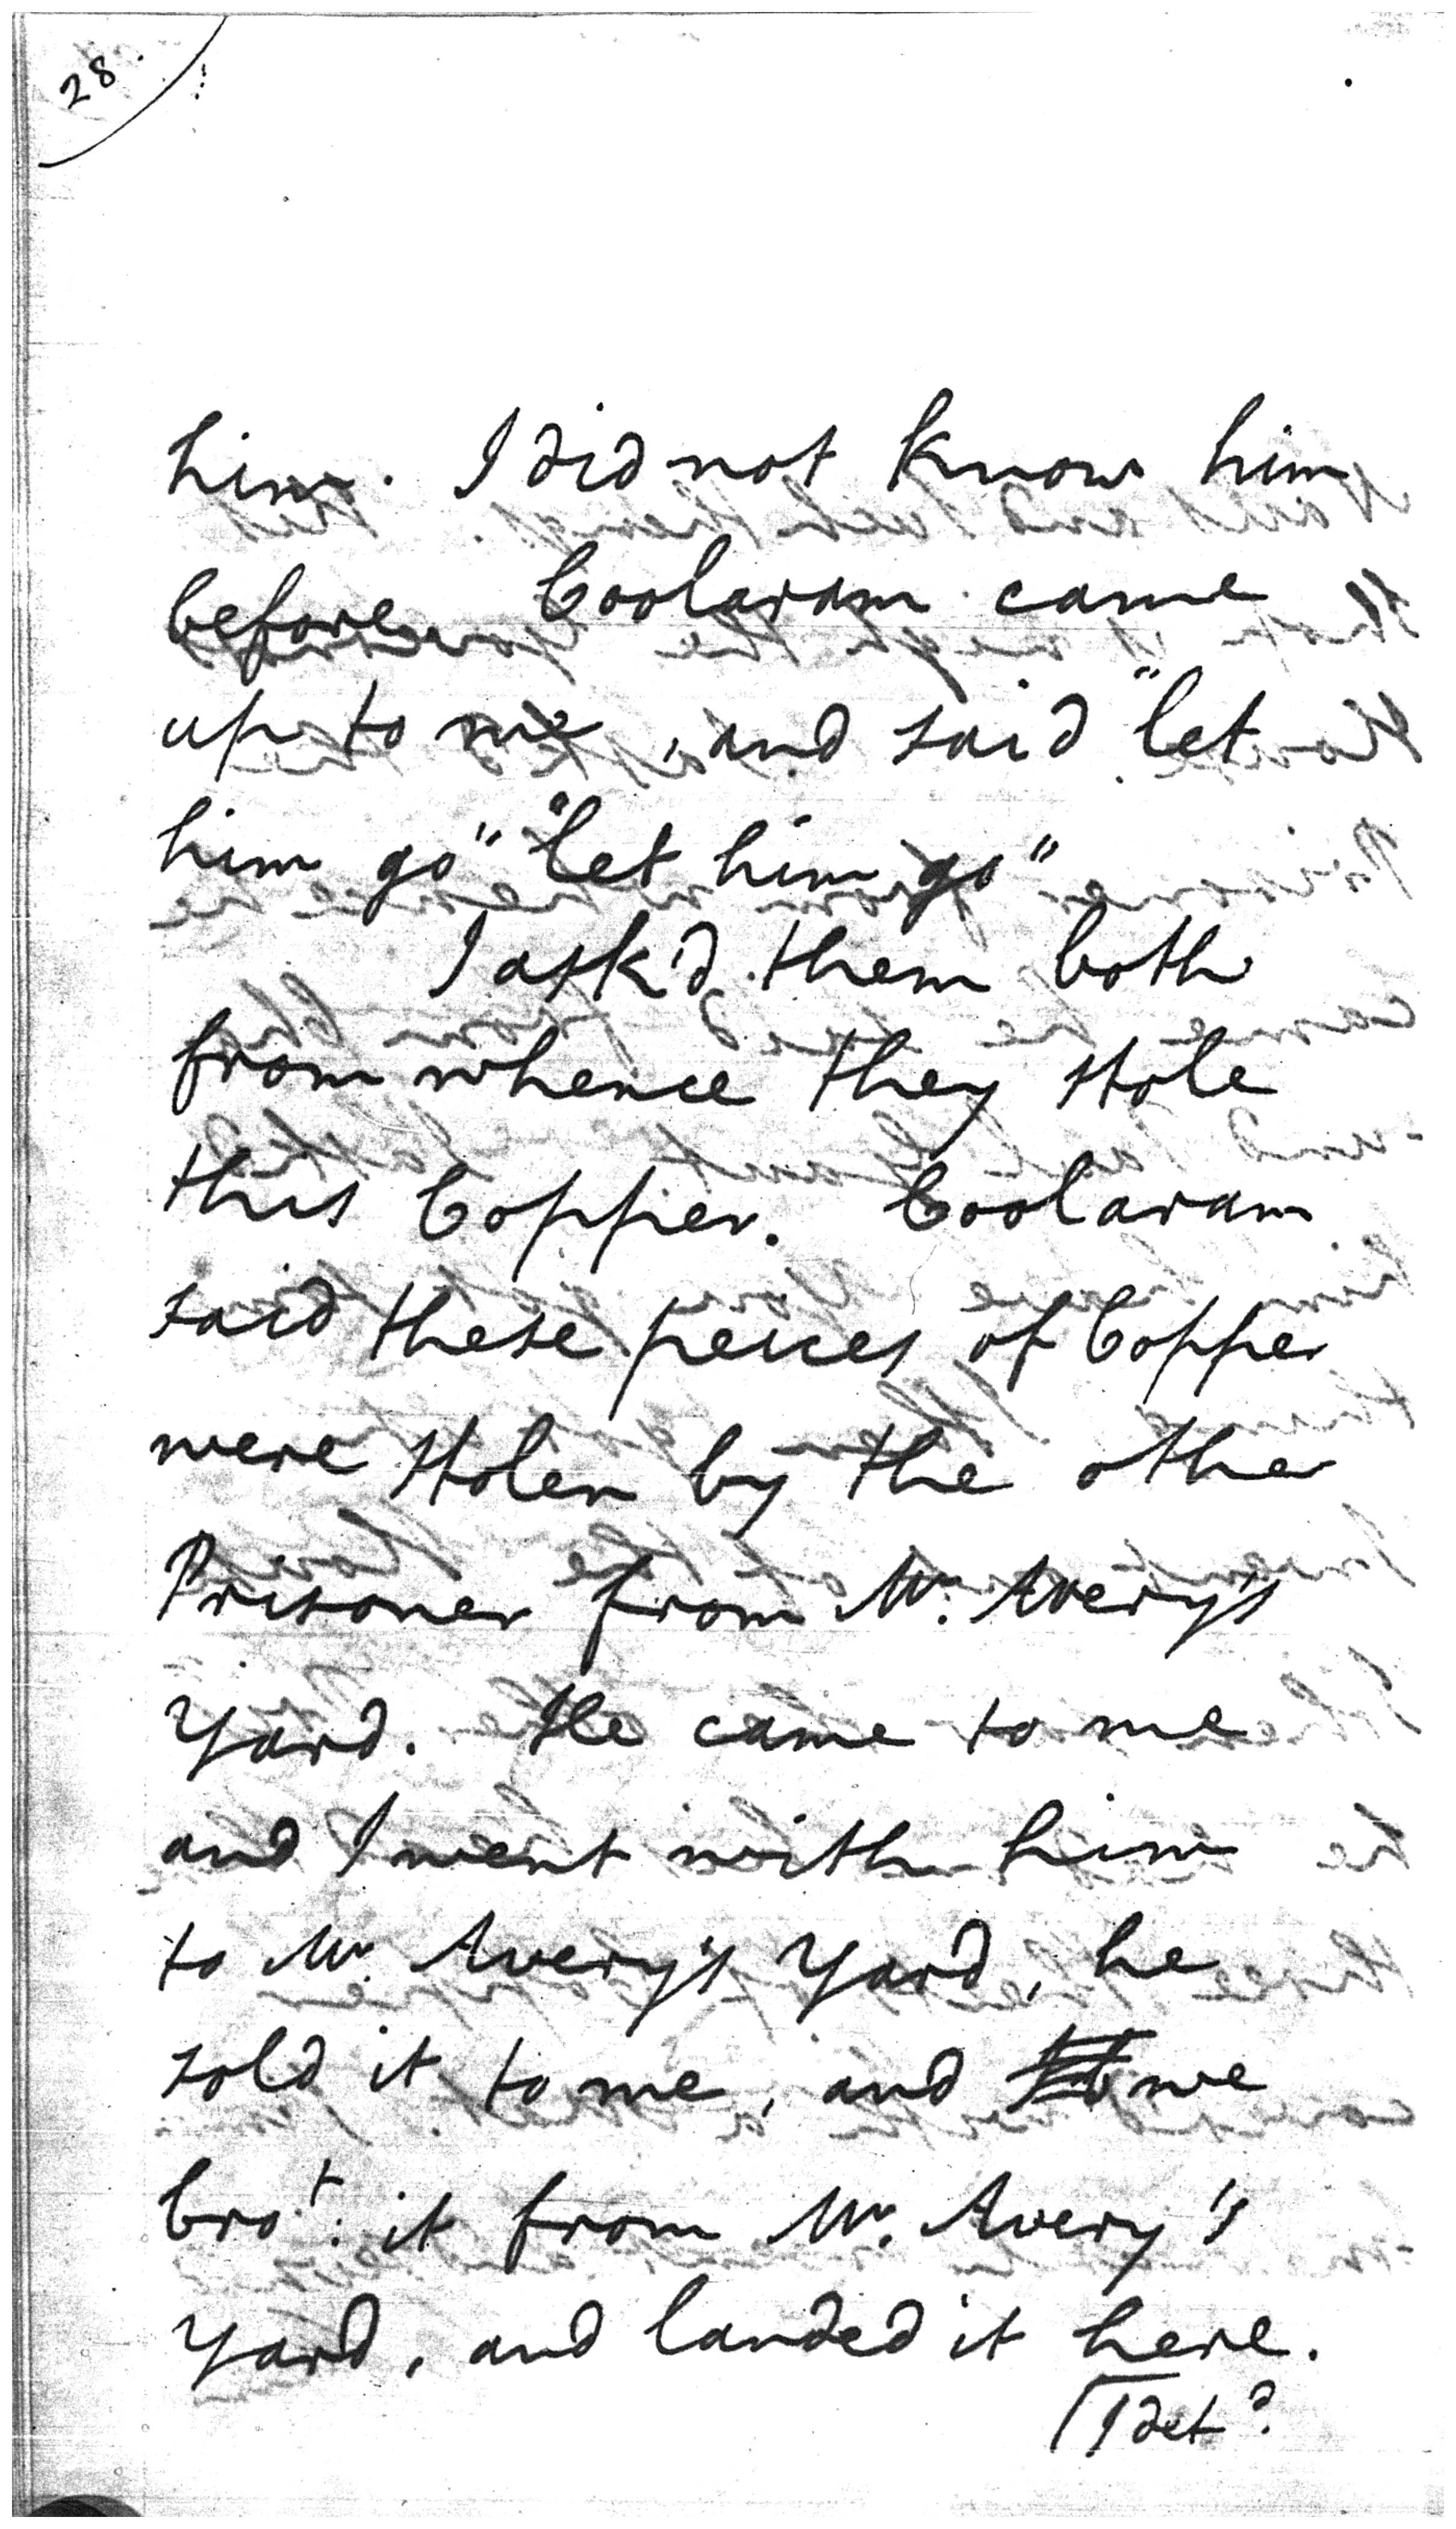 28.
him. I did not know him
before Coolaram came
up to me, and said "let
him go" "let him go"
I ask'd them both
from whence they stole
this Copper. Coolaram
said these peices of Copper
were stolen by the other
Prisoner from Mr. Avery's
Yard. He came to me
and I went with him
to Mr. Avery's Yard, he
sold it to me, and we
bro.t it from Mr. Avery's
Yard, and landed it here.
I det.d